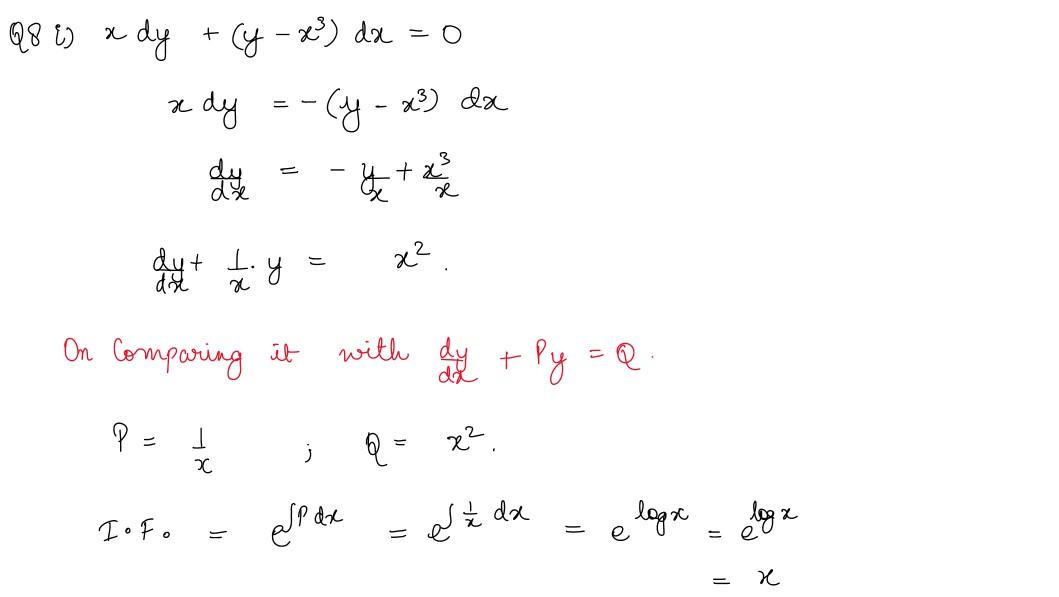 Q8 i) x dy + (y - x³) dx = 0
x dy = - (y - x³) dx
dy/dx = - y/x + x³/x
dy/dx + 1/x . y = x² .
On Comparing it with dy/dx + Py = Q .
P = 1/x ; Q = x² .
I.F. = e^∫P dx = e^∫ 1/x dx = e^log x = e^log x
= x